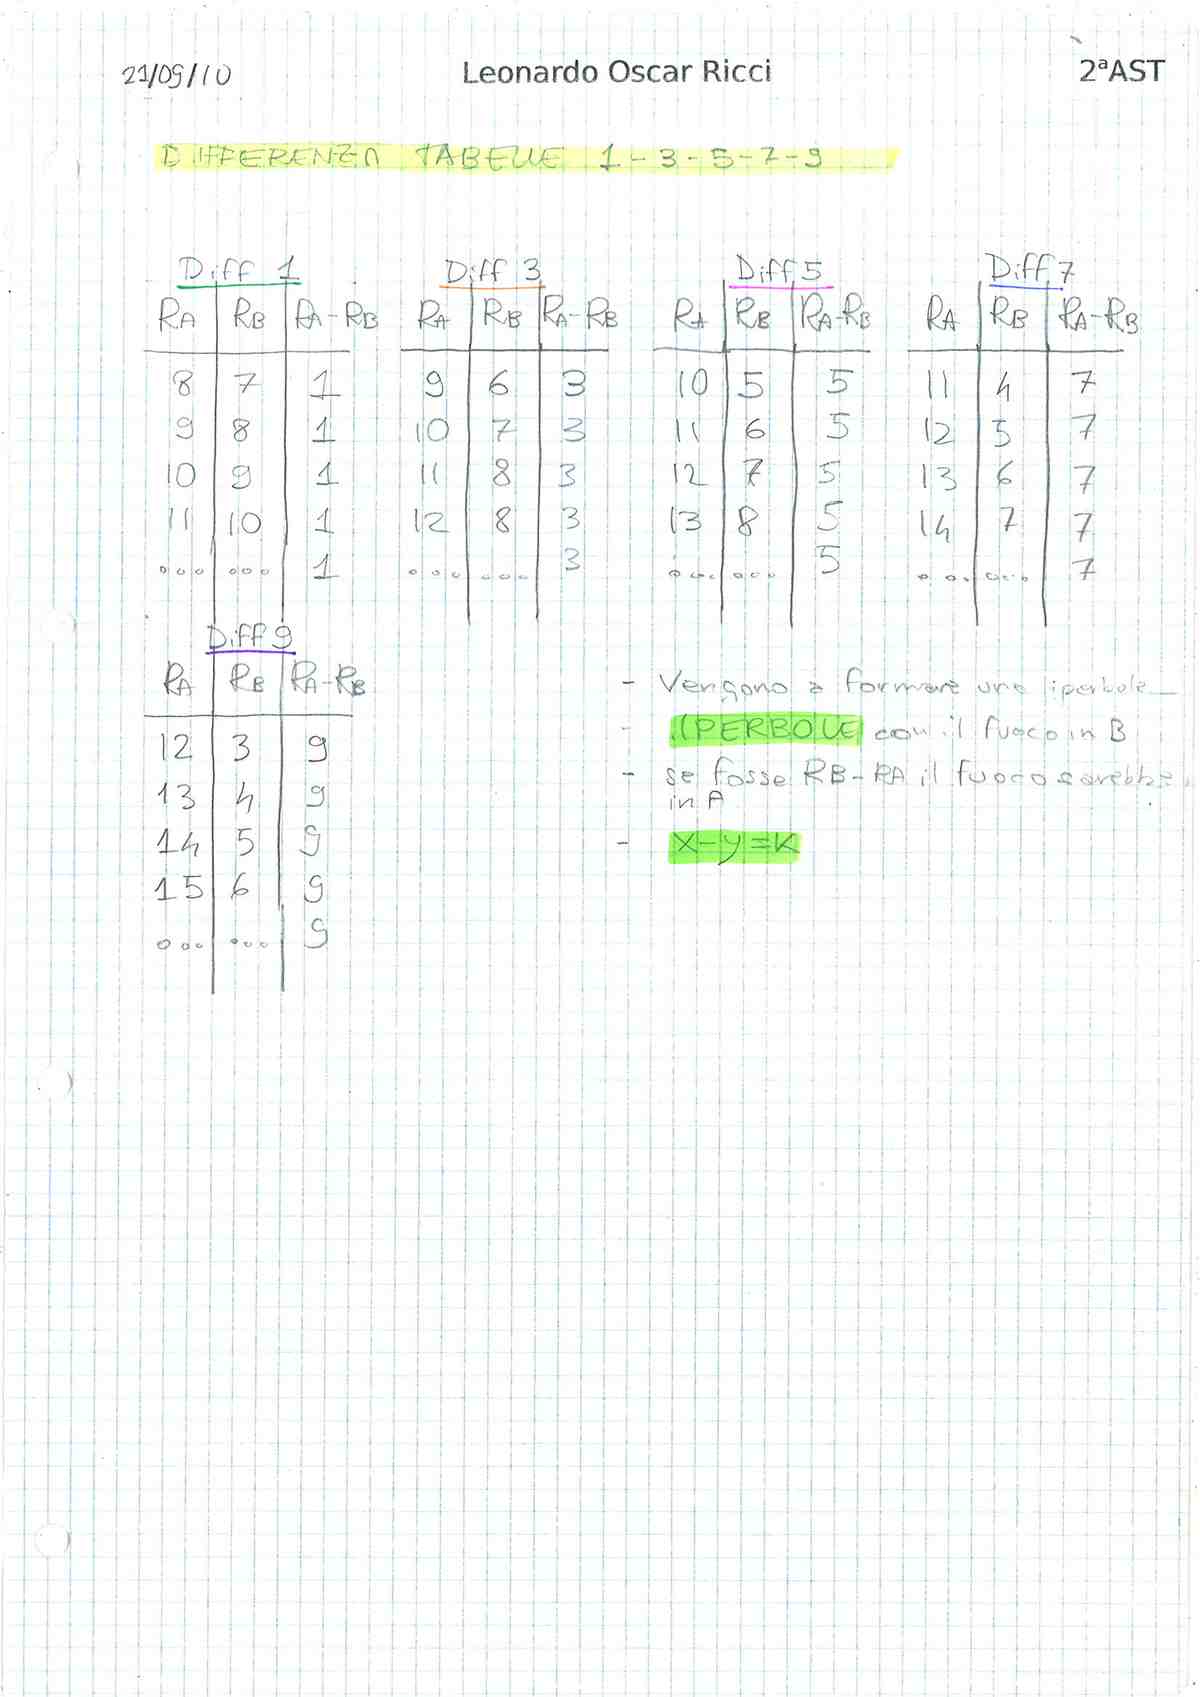 21/09/10 Leonardo Oscar Ricci 2ªAST
DIFFERENZA TABELLE 1-3-5-7-9
Diff 1 Diff 3 Diff 5 Diff 7
RA RB RA-RB RA RB RA-RB RA RB RA-RB RA RB RA-RB
8 7 1 9 6 3 10 5 5 11 4 7
9 8 1 10 7 3 11 6 5 12 5 7
10 9 1 11 8 3 12 7 5 13 6 7
11 10 1 12 8 3 13 8 5 14 7 7
... ... 1 ... ... 3 ... ... 5 ... ... 7
Diff 9
RA RB RA-RB
12 3 9
13 4 9
14 5 9
15 6 9
... ... 9
- Vengono a formare una iperbole
- IPERBOLE con il fuoco in B
- se fosse RB-RA il fuoco sarebbe
in A
- x-y=K